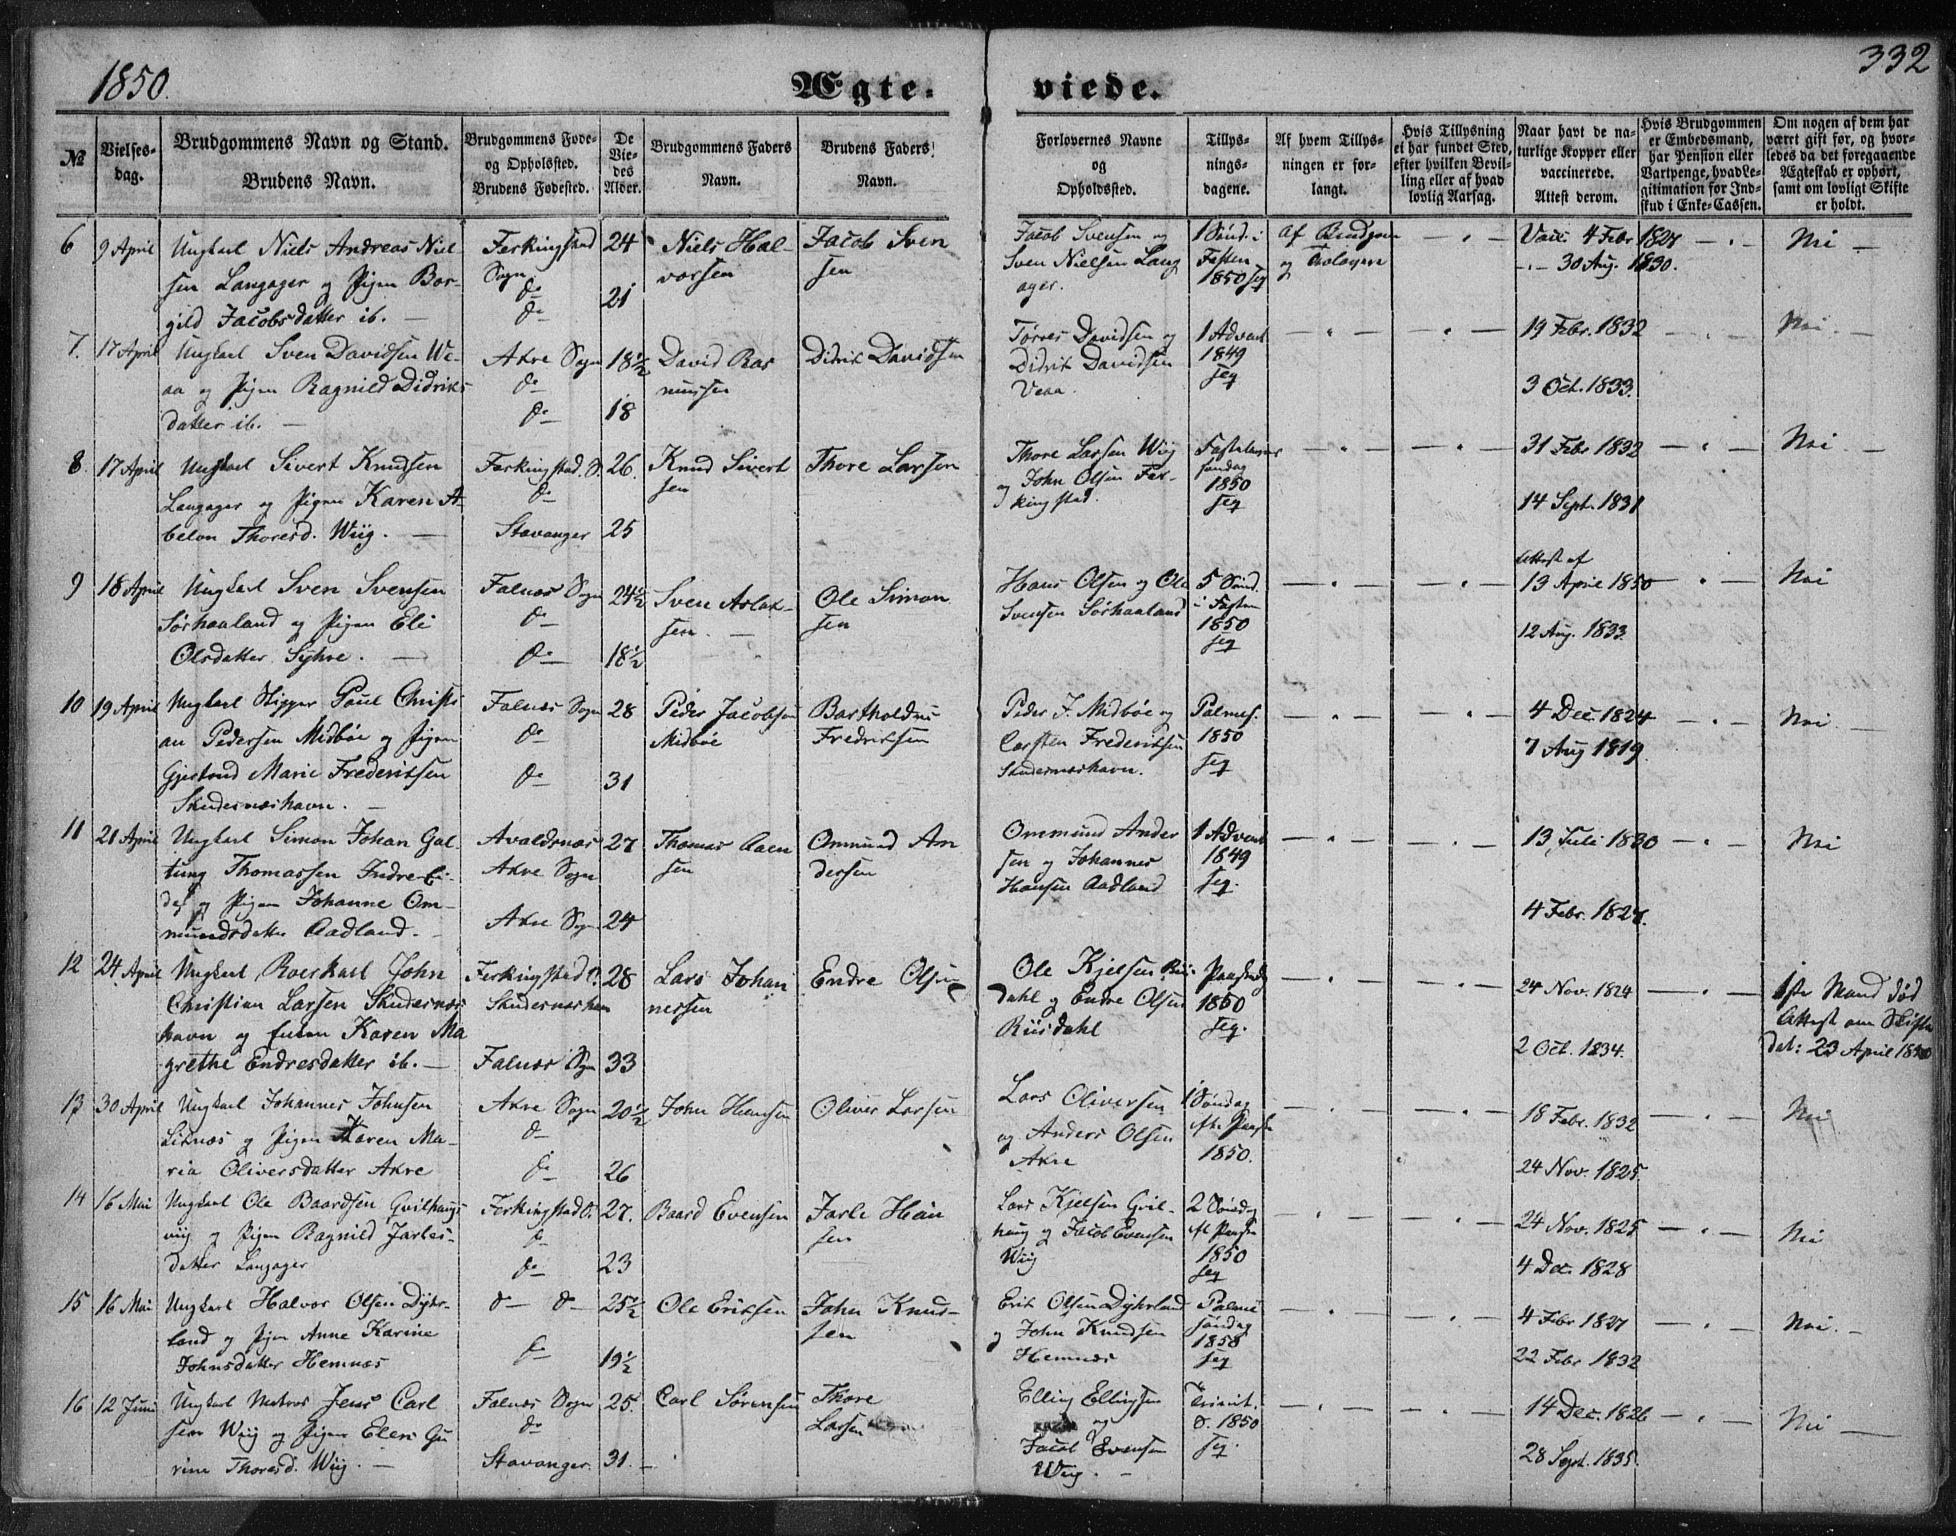 1850.
Ægte-
viede.
332
№
Vielses-
dag.
Brudgommens Navn og Stand.
Brudens Navn.
Brudgommens Føde-
og Opholssted.
Brudens Fødested.
De
Vie-
des
Alder.
Brudgommens Faders
Navn.
Brudens Faders
Navn.
Forlovernes Navne
og
Opholdssted.
Tillys-
nings-
dagene.
Af hvem Tillys-
ningen er for-
langt.
Hvis Tillysning
ei har fundet Sted,
efter hvilken Bevil-
ling eller af hvad
lovlig Aarsag.
Naar havt de na-
turlige Kopper eller
vaccinerede.
Attest derom.
Hvis Brudgommen
er Embedsmand,
har Pension eller
Vartpenge, hvad Le-
gitimation for Ind-
skud i Enke-Cassen.
Om nogen af dem har
været gift før, og hvor-
ledes da det foregaaende
Ægteskab er ophørt,
samt om lovligt Skifte
er holdt.
6
9 April
Ungkarl Niels Andreas Niel-
sen Langager og Pigen Bor-
gild Jacobsdatter ib. —
Ferkingstad
Sogn
do
do
24
21
Niels Hal-
vorsen
Jacob Sven
sen
Jacob Svensen og
Sven Nielsen Lang
ager.
1 Sønd. i
Fasten
1850 seq
Af Brudgom
og Forlovere
Vacc. 4 Febr 1827
-,- 30 Aug. 1830.
Nei —
7.
17 April
Ungkarl Sven Davidsen We-
aa og Pigen Ragnild Didriks
datter ib. —
Akre Sogn
do
do
18½
18
David Ras
mussen
Didrik Davidsen
Torres Davidsen og
Didrik Davidsen
Veaa.
1 Advent
1849
seq
19 Febr. 1832
3 Oct. 1833.
Nei. —
8.
17 April
Ungkarl Sivert Knudsen
Langager og Pigen Karen A-
belon Thoresd. Wiig. —
Ferkingstad. S.
do
Stavanger
26.
25
Knud Sivert
sen
Thore Larsen
Thore Larsen Wiig
og John Olsen Fer-
kingstad.
Fastelavns
søndag
1850
seq
31 Febr 1832
14 Sept. 1831
Nei. —
9
18 April
Ungkarl Sven Svensen
Sørhaaland og Pigen Eli
Olsdatter Syhre. —
Falnæs Sogn
do
do
24½
18½
Sven Aslak-
sen. —
Ole Simon
sen
Hans Olsen og Ole
Svensen Sørhaaland
5 Sønd.
i Fasten
1850
seq
Attest af
13 April 1850
12 Aug. 1833.
Nei
10
19 April
Ungkarl Skipper Poul Christi
an Pedersen Midbøe og Pigen
Gjertrud Marie Frederiksen
Skudesnæshavn. —
Falnæs Sogn
do
do
28
31
Peder Jacobsen
Midbøe
Bartholdus
Fredriksen
Peder J. Midbøe og
Carsten Frederiksen
Skudesnæshavn.
Palmes.
1850
seq
4 Dec. 1824
7 Aug 1819.
Nei
11
21 April
Ungkarl Simon Johan Gal
tung Thomassen Indre Ei-
de, og Pigen Johanne Om-
mundsdatter Aadland. —
Avaldsnæs
Akre Sogn
Akre Sogn
27
24
Thomas Aaen
sen
Ommund An
dersen
Ommund Ander
sen og Johannes
Hansen Aadland
1 Advent
1849
seq.
13 Juli 1830
4 Febr. 1827.
Nei
12
24 April
Ungkarl Roerskarl John
Christian Larsen Skudesnæs
havn og Enken Karen Ma
grethe Endresdatter ib. —
Ferkingstad S.
Skudesnæshavn
Falnæs Sogn
28
33
Lars Johan
nessen
Endre Olsen
Ole Kjelsen Riis-
dahl og Endre Olsen
Riisdahl
Paaskedg
1850
seq.
24 Nov. 1824
2 Oct. 1834.
1ste Mand død
Attest om Skifte
dat: 23 April 1850
13
30 April
Ungkarl Johannes Johnsen
Liknæs og Pigen Karen Ma-
ria Oliversdatter Akre
Akre Sogn
do
do
20½
26
John Hansen
Oliver Larsen
Lars Oliversen
og Anders Olsen
Akre
1 Søndag
eft. Paaske
1850.
18 Febr. 1832
24 Nov. 1825.
Nei
14
16 Mai
Ungkarl Ole Baardsen Qvilhaugs
viig og Pigen Ragnild Jarles-
datter Langager
Ferkingstad S.
do
do
27.
23
Baard Evensen
Jarle Han
sen
Lars Kjelsen Qvil-
haug og Jacob Evensen
Wiig
2 Søndg
eft Paaske
1850
seq
24 Nov. 1825
4 Dec. 1828
Nei
15
16 Mai
Ungkarl Halvor Olsen Dyhr-
land og Pigen Anne Karine
Johnsdatter Hemnæs
do do
do
25½
19½
Ole Eriksen
John Knud-
sen
Erik Olsen Dyhrland
og John Knudsen
Hemnæs
Palme
søndag
1850
seq
4 Febr 1827
22 Febr 1832
Nei. —
16
12 Juni
Ungkarl Matros Jens Carl
sen Wiig og Pigen Elen Gu
rine Thoresd. Wiig. —
Falnæs Sogn
do
Stavanger.
25.
31.
Carl Sørensen
Thore
Larsen
Elling Ellingsen
og
Jacob Evensen
Wiig. —
Trinit.
S. 1850
seq.
14 Dec. 1826
28 Sept. 1835.
Nei —